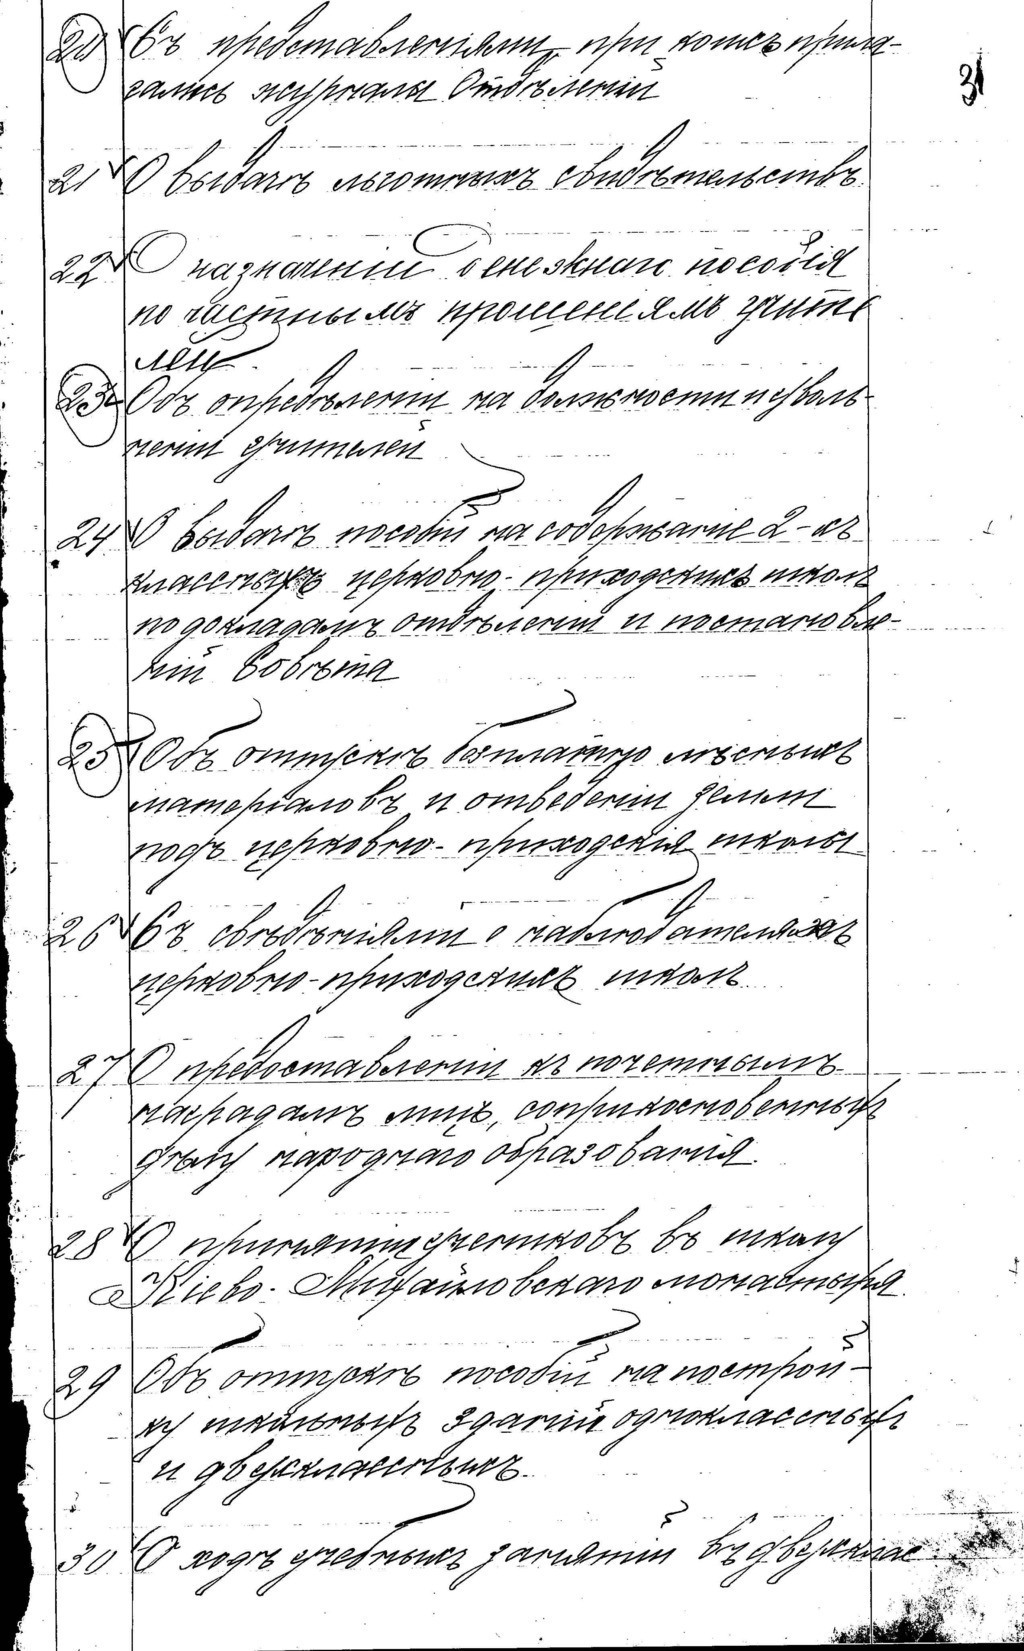 31
20 Съ представленіями, при коихъ прила-
гались журналы Отдѣленій
21 О выдачѣ льготныхъ свидѣтельствъ
22 О назначеніи денежнаго пособія
по частнымъ прошеніямъ учите
лей.
23 Объ опредѣленіи на должности и уволь-
неніи учителей
24 О выдачѣ пособій на содержаніе 2-хъ
классныхъ церковно-приходскихъ школъ
по докладамъ отдѣленій и постановле-
ній Совѣта
25 Объ отпускѣ безплатно лѣсныхъ
матеріаловъ и отведеніи земли
подъ церковно-приходскія школы
26 Съ свѣдѣніями о наблюдателяхъ
церковно-приходскихъ школъ
27 О предоставленіи къ почетнымъ
наградамъ лицъ, соприкосновенныхъ
дѣлу народнаго образованія.
28 О принятіи учениковъ въ школу
Кіево-Михайловскаго монастыря.
29 Объ отпускѣ пособій на построй-
ку школьныхъ зданій одноклассныхъ
и двухклассныхъ.
30 О ходѣ учебныхъ занятій въ двухклас